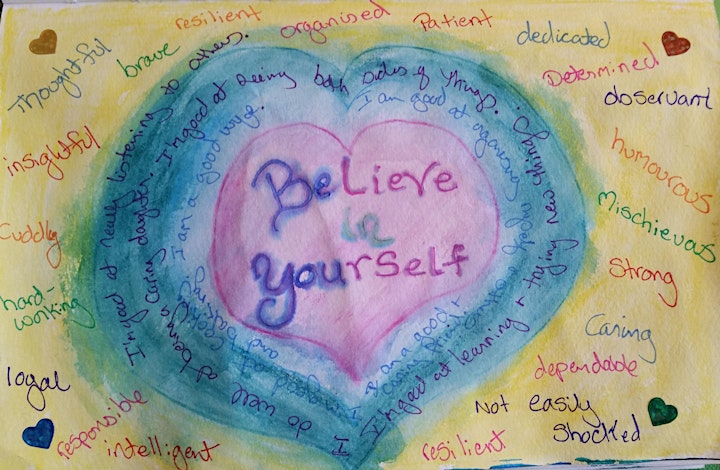 resilient
organised
Patient
dedicated
Determined
observant
humourous
Mischievous
Strong
Caring
dependable
Not easily
Shocked
resilient
intelligent
responsible
loyal
hard-
working
Cuddly
insightful
Thoughtful
brave
I'm good at really listening to others.
I'm good at seeing both sides of things.
I'm good at learning + trying new things
I do well at being a caring daughter.
I am a good wife.
I am good at organising
I'm good at cooking
and baking.
I am a good +
caring friend
Believe
in
yourself